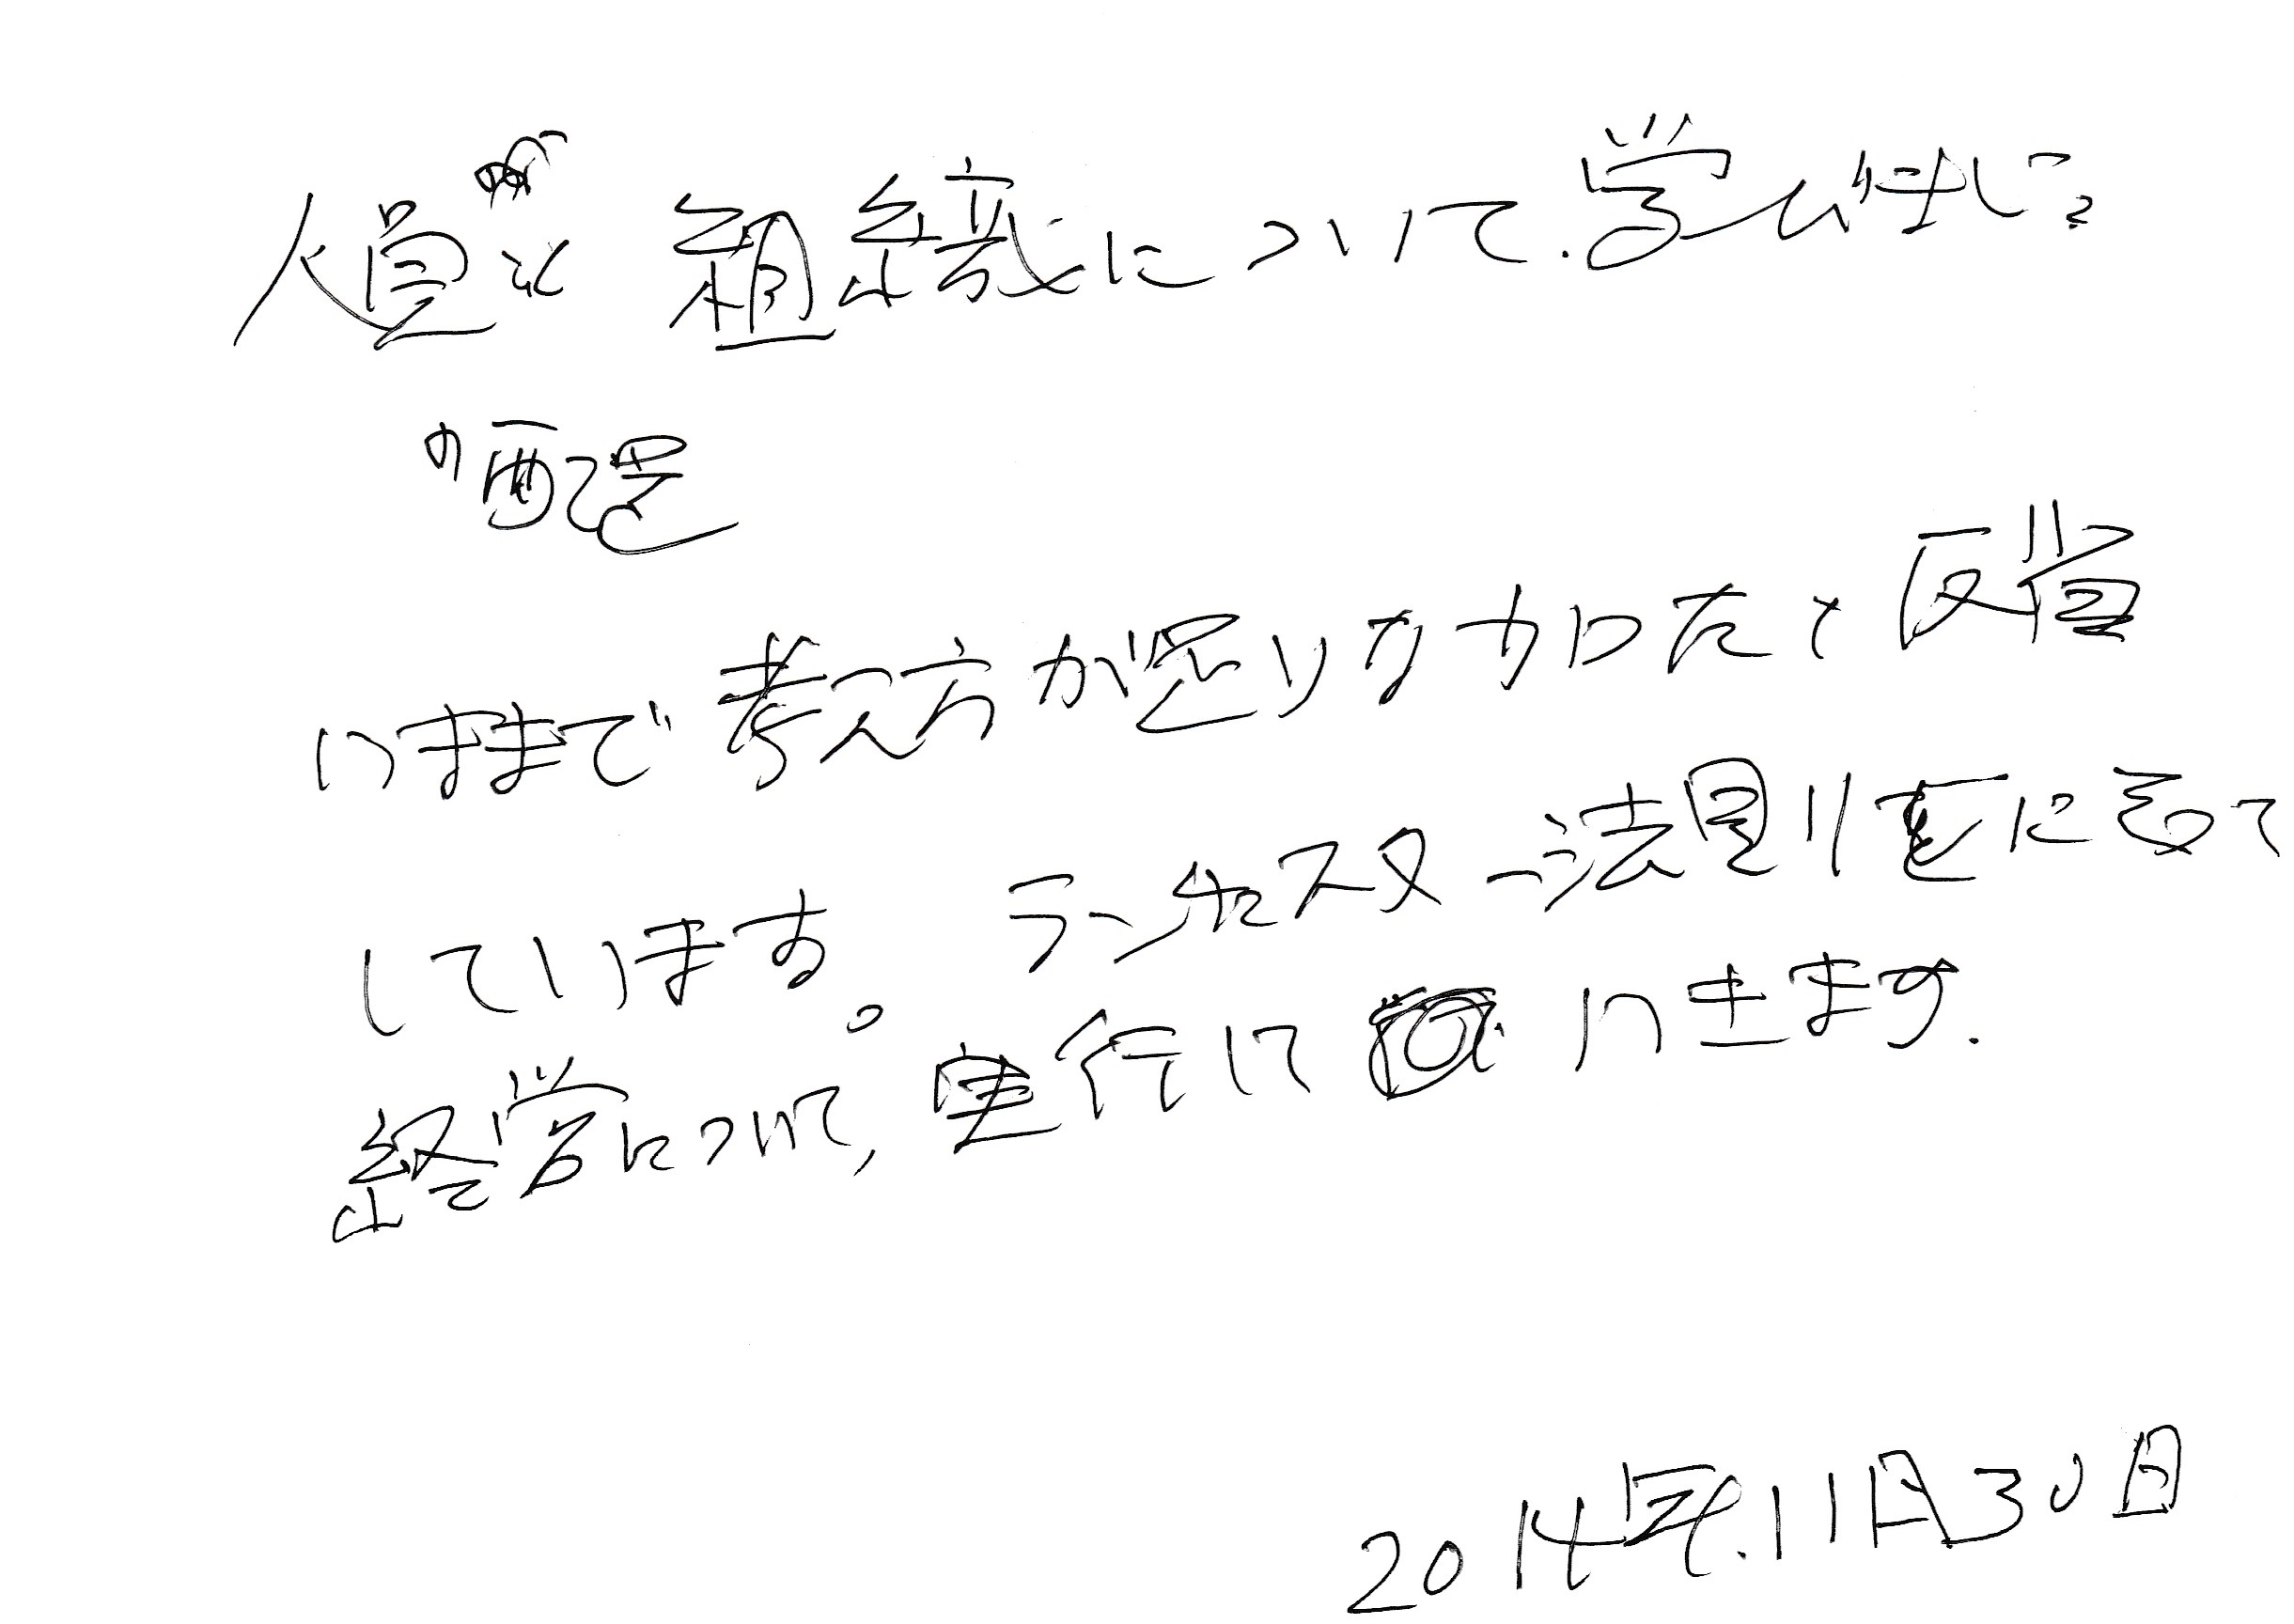 人員と組織について.学びました
の配置
いままで考え方が足りなかったと反省
しています。ランチェスター法則をにもって
経営について,実行に いきます.
2014年.11月30日